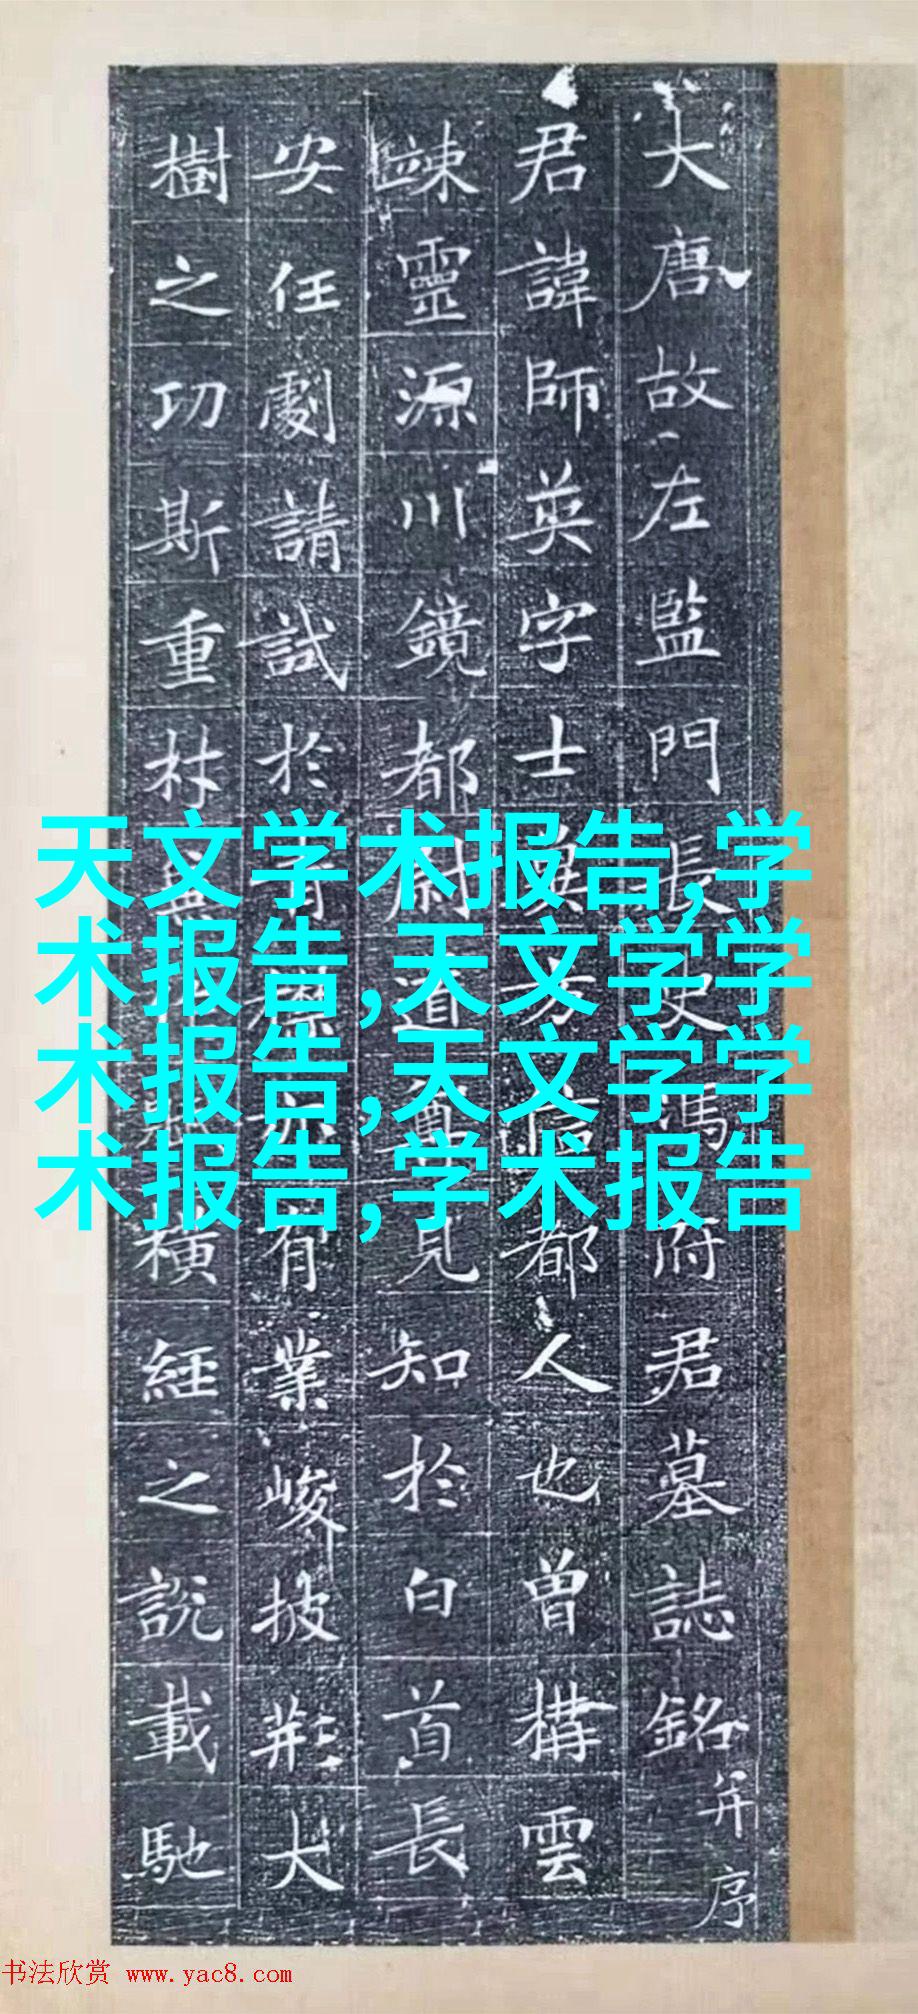 大唐故左監門長史馮府君墓誌銘并序
君諱師英字士芳信都人也曾構雲
竦靈源川鏡都尉道見知於白首長
安任劇請試於亦有業峻披荊大
樹之功斯重橫經之說載馳
天文学术报告,学
术报告,天文学学
术报告,天文学学
术报告,学术报告
书法欣赏 www.yac8.com